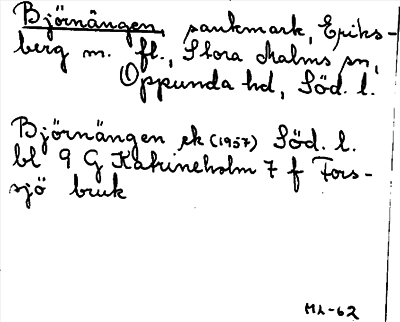 Björnängen, sankmark, Eriks-
berg m. fl., Stora Malms sn,
Oppunda hd, Söd. l.
Björnängen ek (1957) Söd. l.
bl 9 G Katrineholm 7 f Fors-
sjö bruk